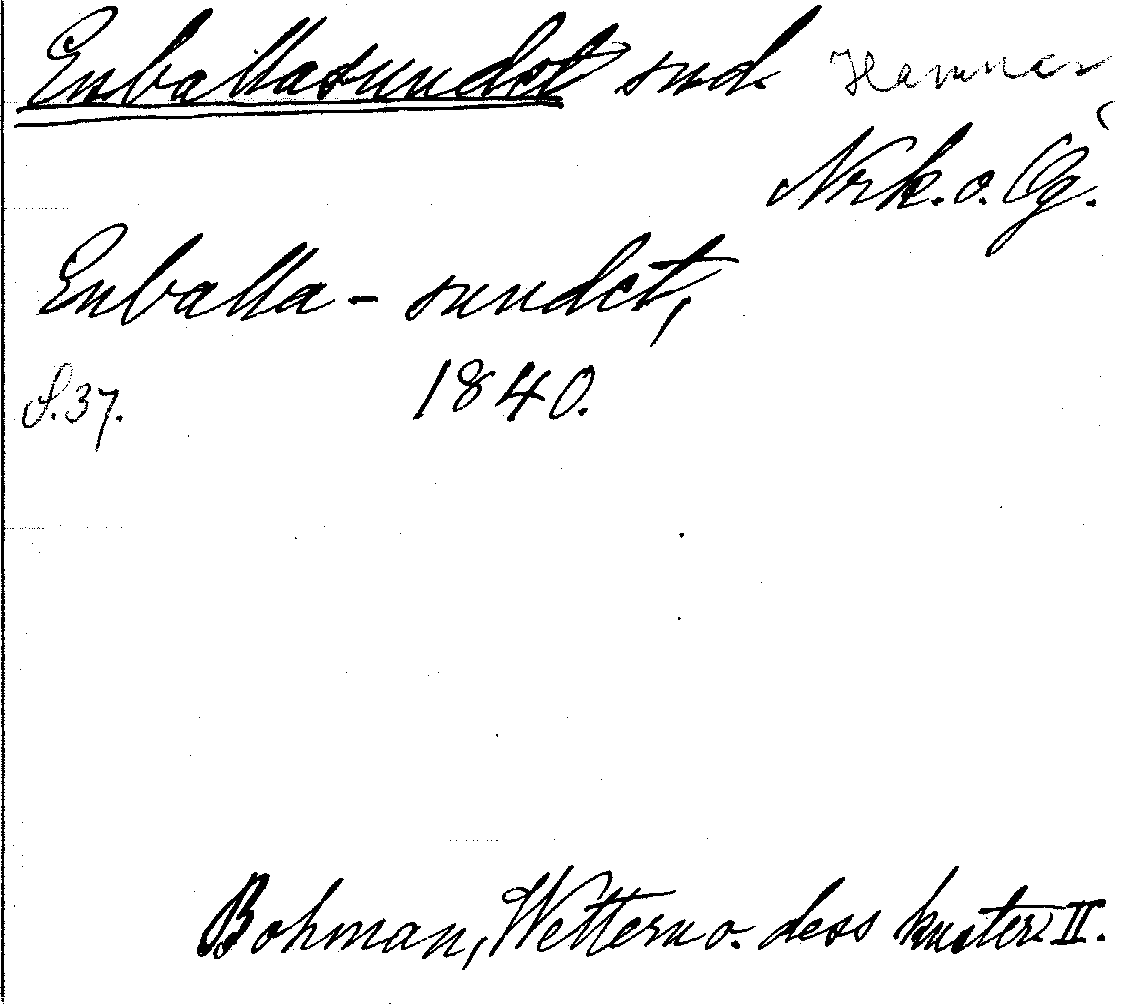 Enballasundet snd. Hammar,
Nrk. o. Ög.
Enballa - sundet,
S. 37. 1840.
Bohman, Wettern o. dess kuster. II.